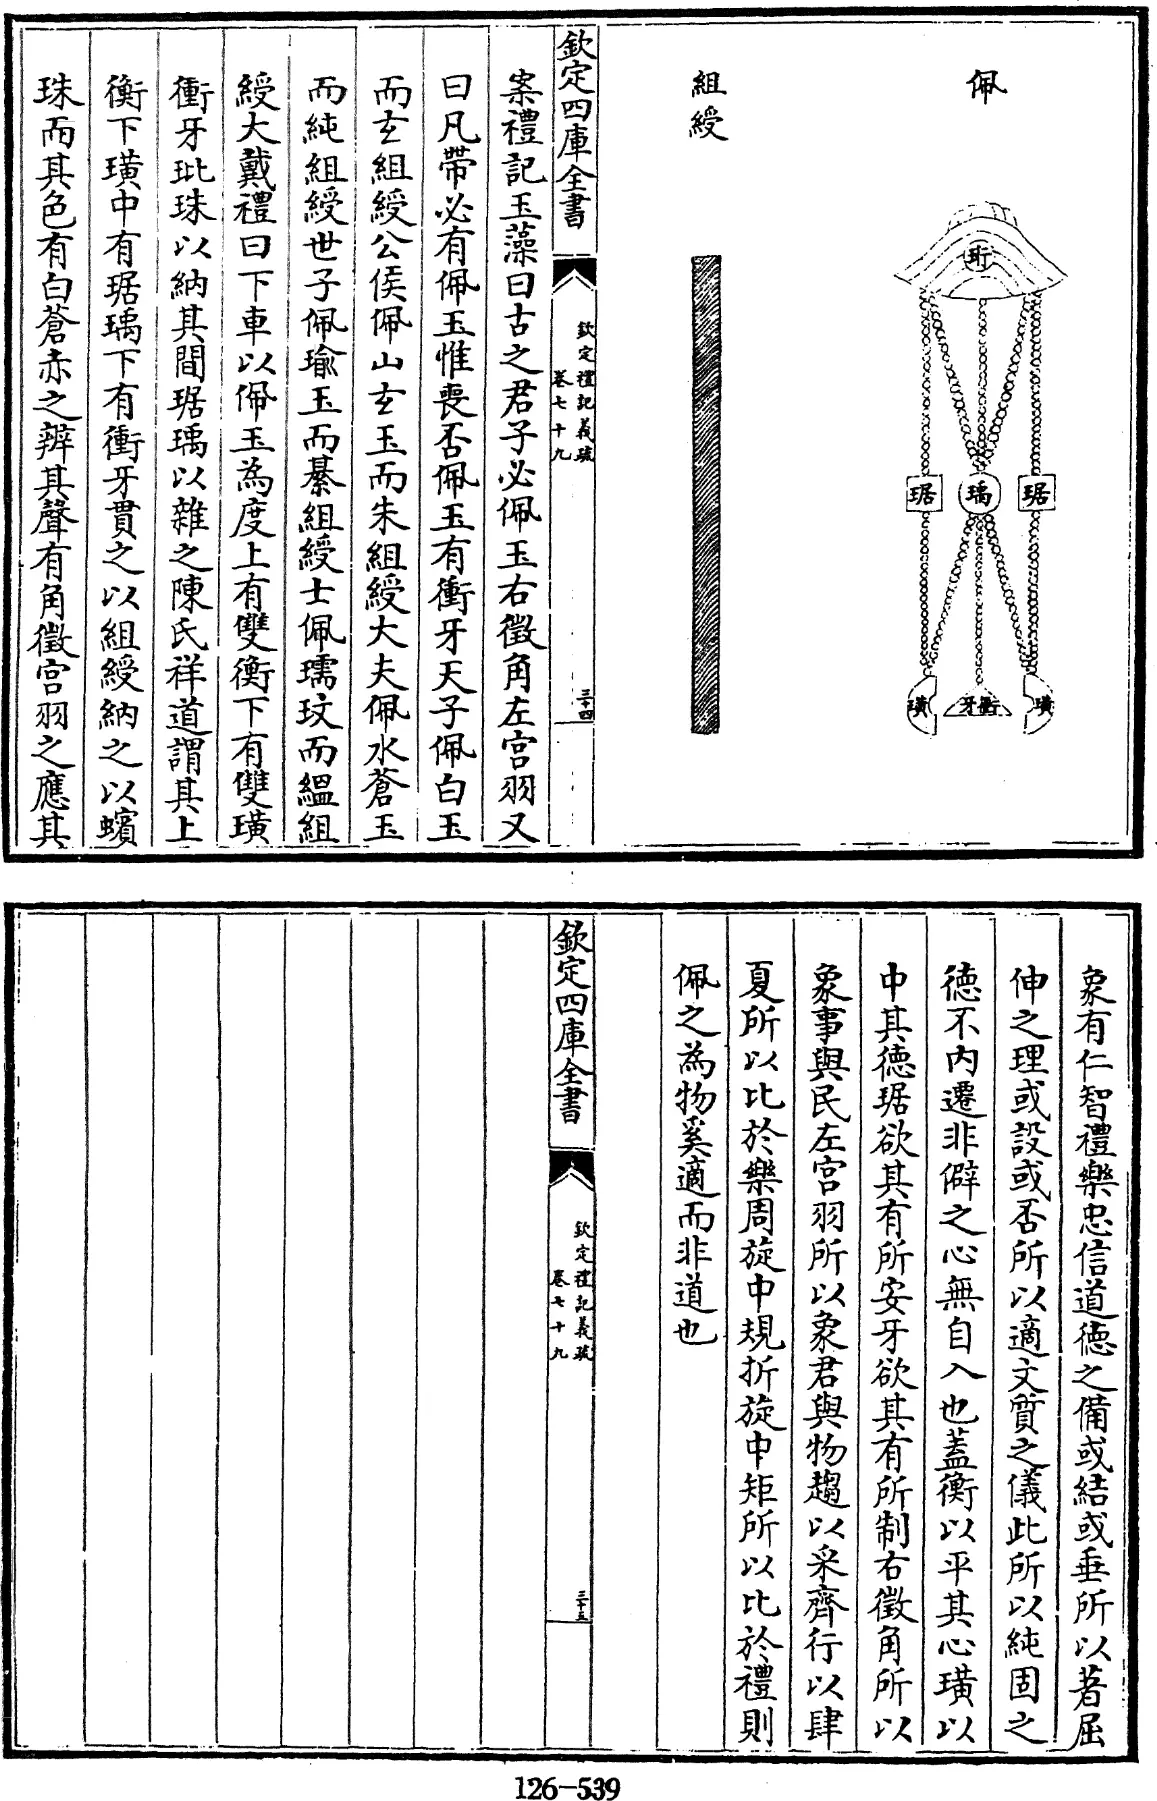 佩
珩
琚
瑀
琚
璜
衝牙
璜
組綬
欽定四庫全書
欽定禮記義疏
卷七十九
三十四
案禮記玉藻曰古之君子必佩玉右徵角左宮羽又
曰凡帶必有佩玉惟喪否佩玉有衝牙天子佩白玉
而玄組綬公侯佩山玄玉而朱組綬大夫佩水蒼玉
而純組綬世子佩瑜玉而綦組綬士佩瓀玟而縕組
綬大戴禮曰下車以佩玉為度上有雙衡下有雙璜
衝牙玭珠以納其間琚瑀以雜之陳氏祥道謂其上
衡下璜中有琚瑀下有衝牙貫之以組綬納之以蠙
珠而其色有白蒼赤之辨其聲有角徵宮羽之應其
象有仁智禮樂忠信道德之備或結或垂所以著屈
伸之理或設或否所以適文質之儀此所以純固之
德不內遷非僻之心無自入也蓋衡以平其心璜以
中其德琚欲其有所安牙欲其有所制右徵角所以
象事與民左宮羽所以象君與物趨以采齊行以肆
夏所以比於樂周旋中規折旋中矩所以比於禮則
佩之為物奚適而非道也
欽定四庫全書
欽定禮記義疏
卷七十九
三十五
126-539